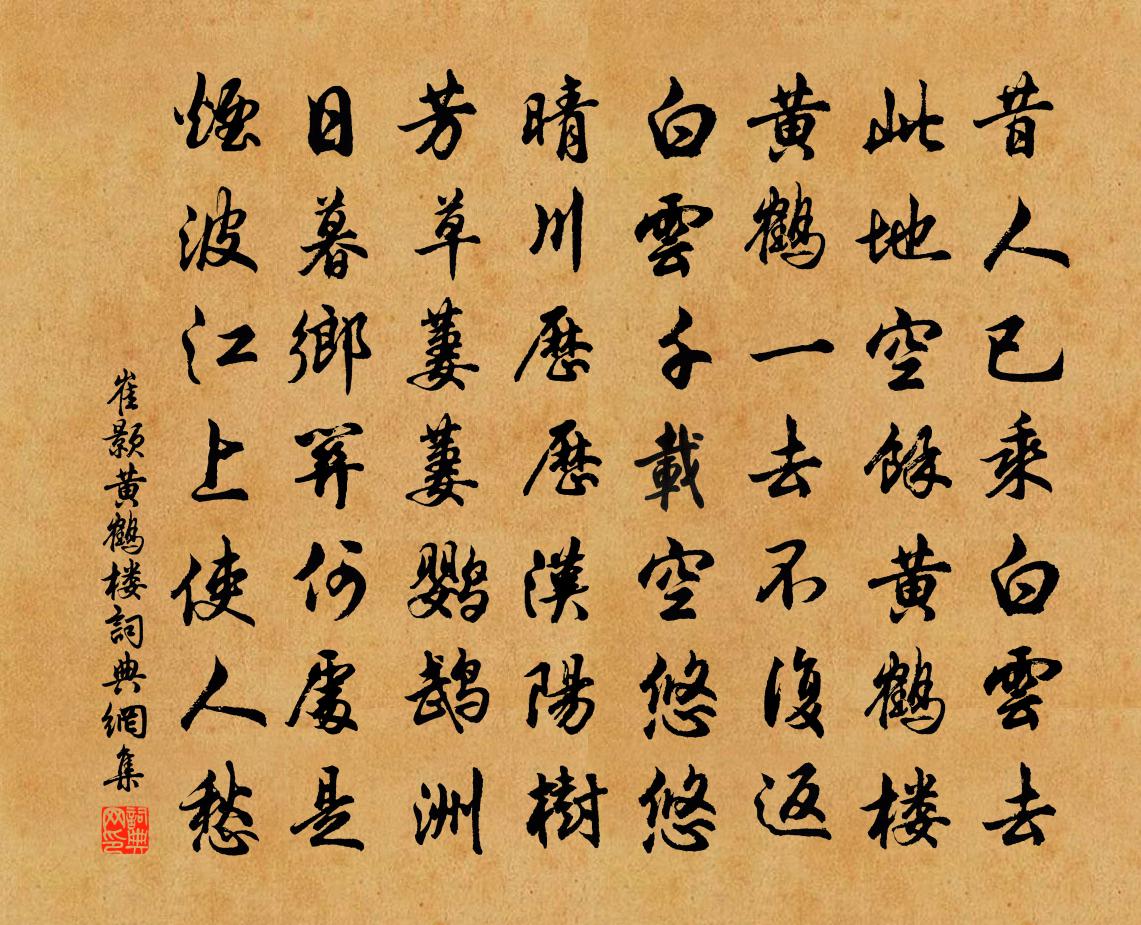 昔人已乘白雲去
此地空餘黄鶴楼
黄鶴一去不復返
白雲千載空悠悠
晴川歷歷漢陽樹
芳草萋萋鸚鵡洲
日暮鄉關何處是
煙波江上使人愁
崔顥黄鶴楼詞典網集
詞典
网印